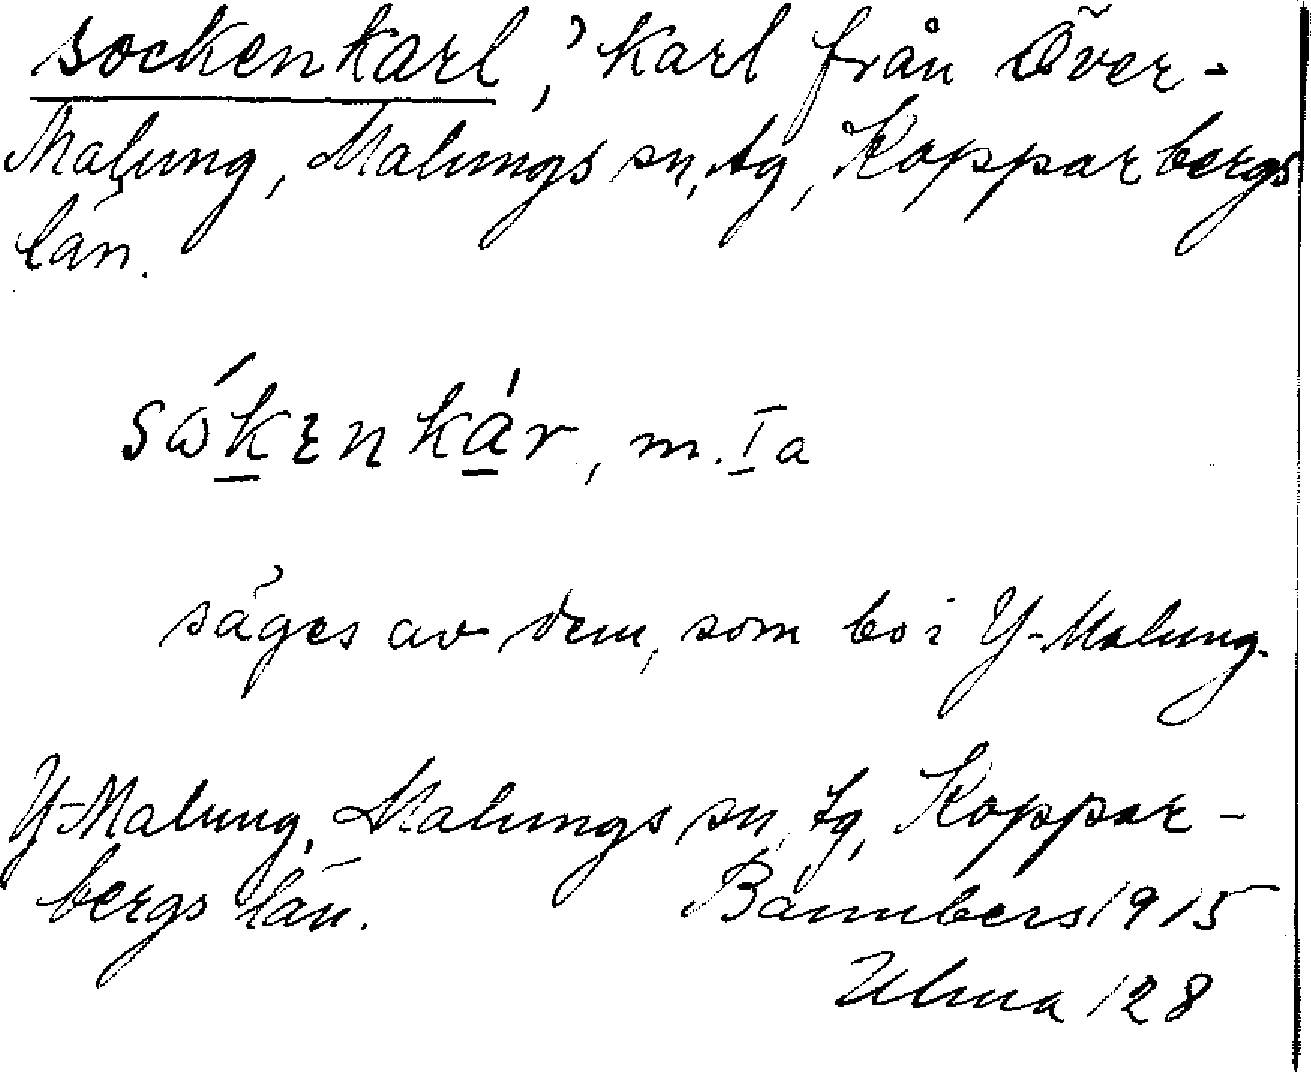 sockenkarl, karl från Över-
Malung, Malungs sn, tg, Kopparbergs
län.
m. Ia
säges av dem, som bo i Y-Malung.
Y-Malung, Malungs sn, tg, Koppar-
bergs län. Bannbers 1915
Ulma 128